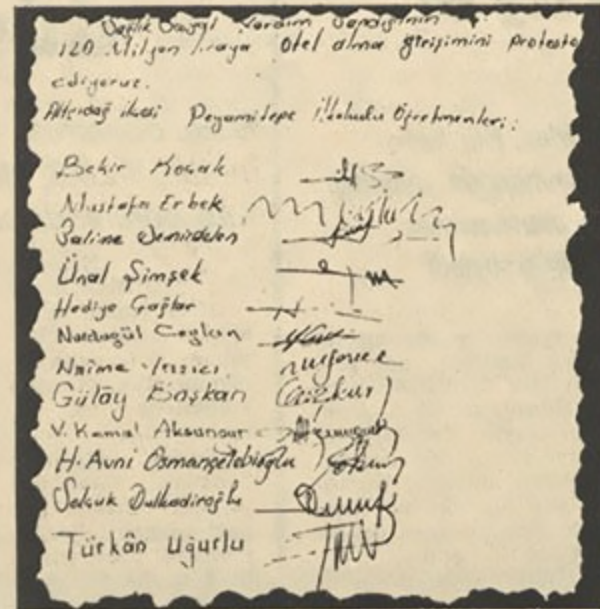 Sağlık Sosyal Yardım Sandığının
120 Milyon liraya otel alma girişimini protesto
ediyoruz.
Altındağ ilçesi Peyamitepe İlkokulu Öğretmenleri:
Bekir Kovak
Mustafa Erbek
Salime Demirdelen
Ünal Şimşek
Hediye Çağlar
Nurdagül Ceylan
Naime Yazıcı
Gülây Başkan
V. Kamal Aksungur
H. Avni Osmançelebioğlu
Selçuk Dulkadiroğlu
Türkân Uğurlu